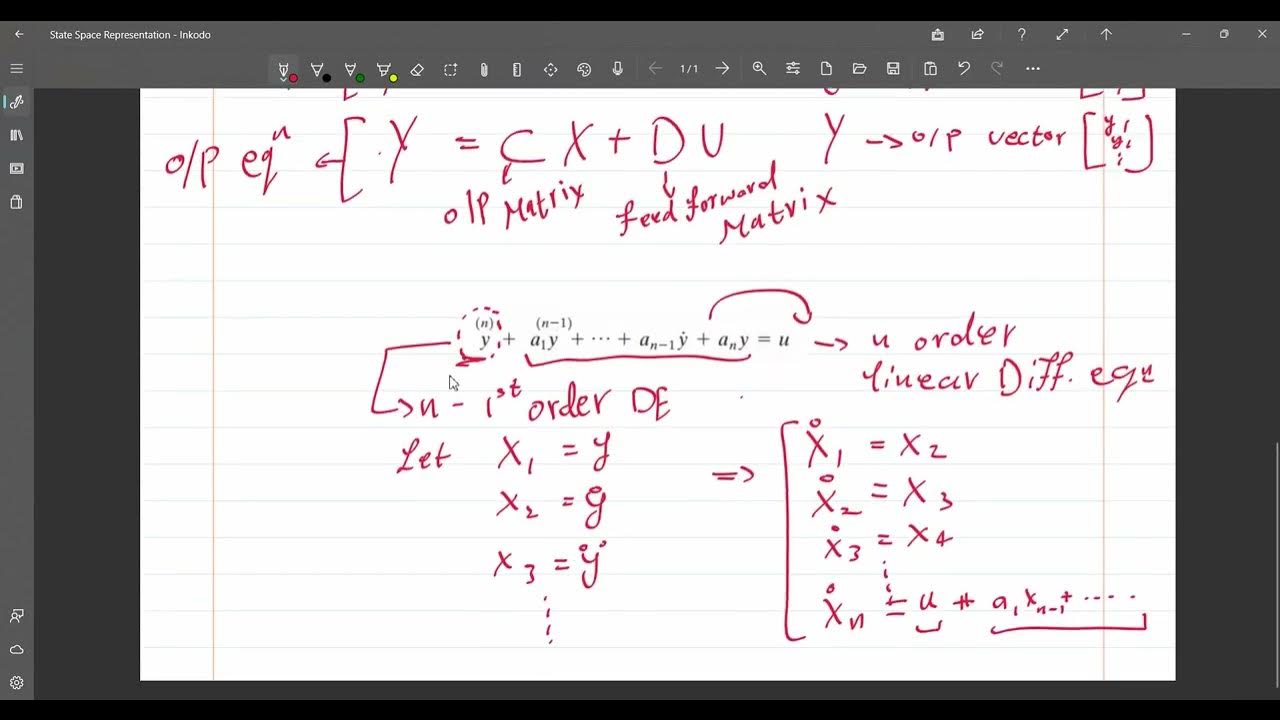 State Space Representation - Inkodo
1/1
o/p eqⁿ ← [ Y = C X + D U
Y → o/p vector [y₁ y₁ ⋮]
o/p Matrix
feed forward Matrix
(n) (n−1)
y + a₁y + ··· + aₙ₋₁ẏ + aₙy = u → n order
linear Diff. eqn
→ n - 1ˢᵗ order DE
Let X₁ = y ⇒ Ẋ₁ = X₂
X₂ = ẏ Ẋ₂ = X₃
X₃ = ÿ Ẋ₃ = X₄
⋮ ⋮
Ẋₙ = u + a₁Xₙ₋₁ + ....